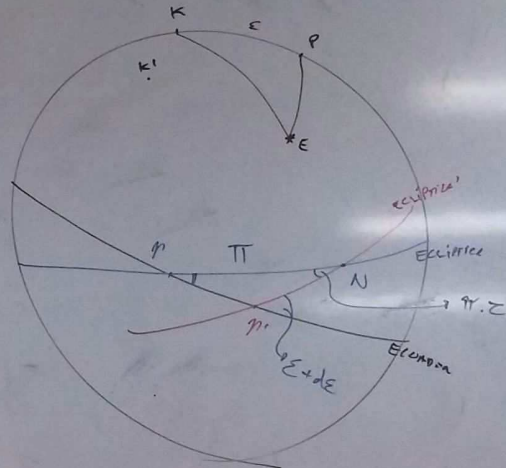 K
ε
P
K'
E
ECLIPTICA'
γ
Π
ECLIPTICA
N
π.τ
γ₁
ε+dε
ECUADOR